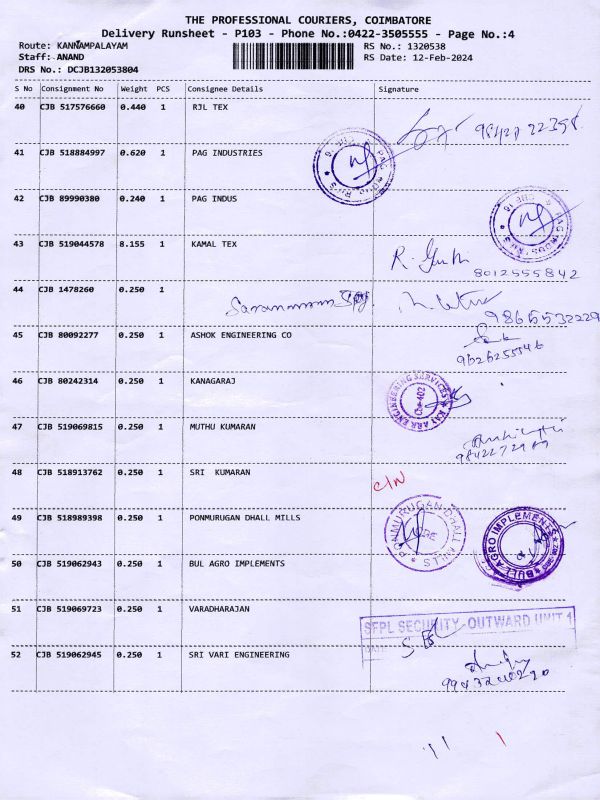 THE PROFESSIONAL COURIERS, COIMBATORE
Delivery Runsheet - P103 - Phone No.:0422-3505555 - Page No.:4
Route: KANNAMPALAYAM
RS No.: 1320538
Staff: ANAND
RS Date: 12-Feb-2024
DRS No.: DCJB132053804
S No Consignment No Weight PCS Consignee Details Signature
40 CJB 517576660 0.440 1 RJL TEX
41 CJB 518884997 0.620 1 PAG INDUSTRIES
42 CJB 89990380 0.240 1 PAG INDUS
43 CJB 519044578 8.155 1 KAMAL TEX
8012555842
44 CJB 1478260 0.250 1
9865532229
45 CJB 80092277 0.250 1 ASHOK ENGINEERING CO
9626255546
46 CJB 80242314 0.250 1 KANAGARAJ
ENGINEERING SERVICES
47 CJB 519069815 0.250 1 MUTHU KUMARAN
48 CJB 518913762 0.250 1 SRI KUMARAN
C/N
49 CJB 518989398 0.250 1 PONMURUGAN DHALL MILLS
PONMURUGAN DHALL MILLS
BULL AGRO IMPLEMENTS
50 CJB 519062943 0.250 1 BUL AGRO IMPLEMENTS
51 CJB 519069723 0.250 1 VARADHARAJAN
SFPL SECURITY - OUTWARD UNIT 1
52 CJB 519062945 0.250 1 SRI VARI ENGINEERING